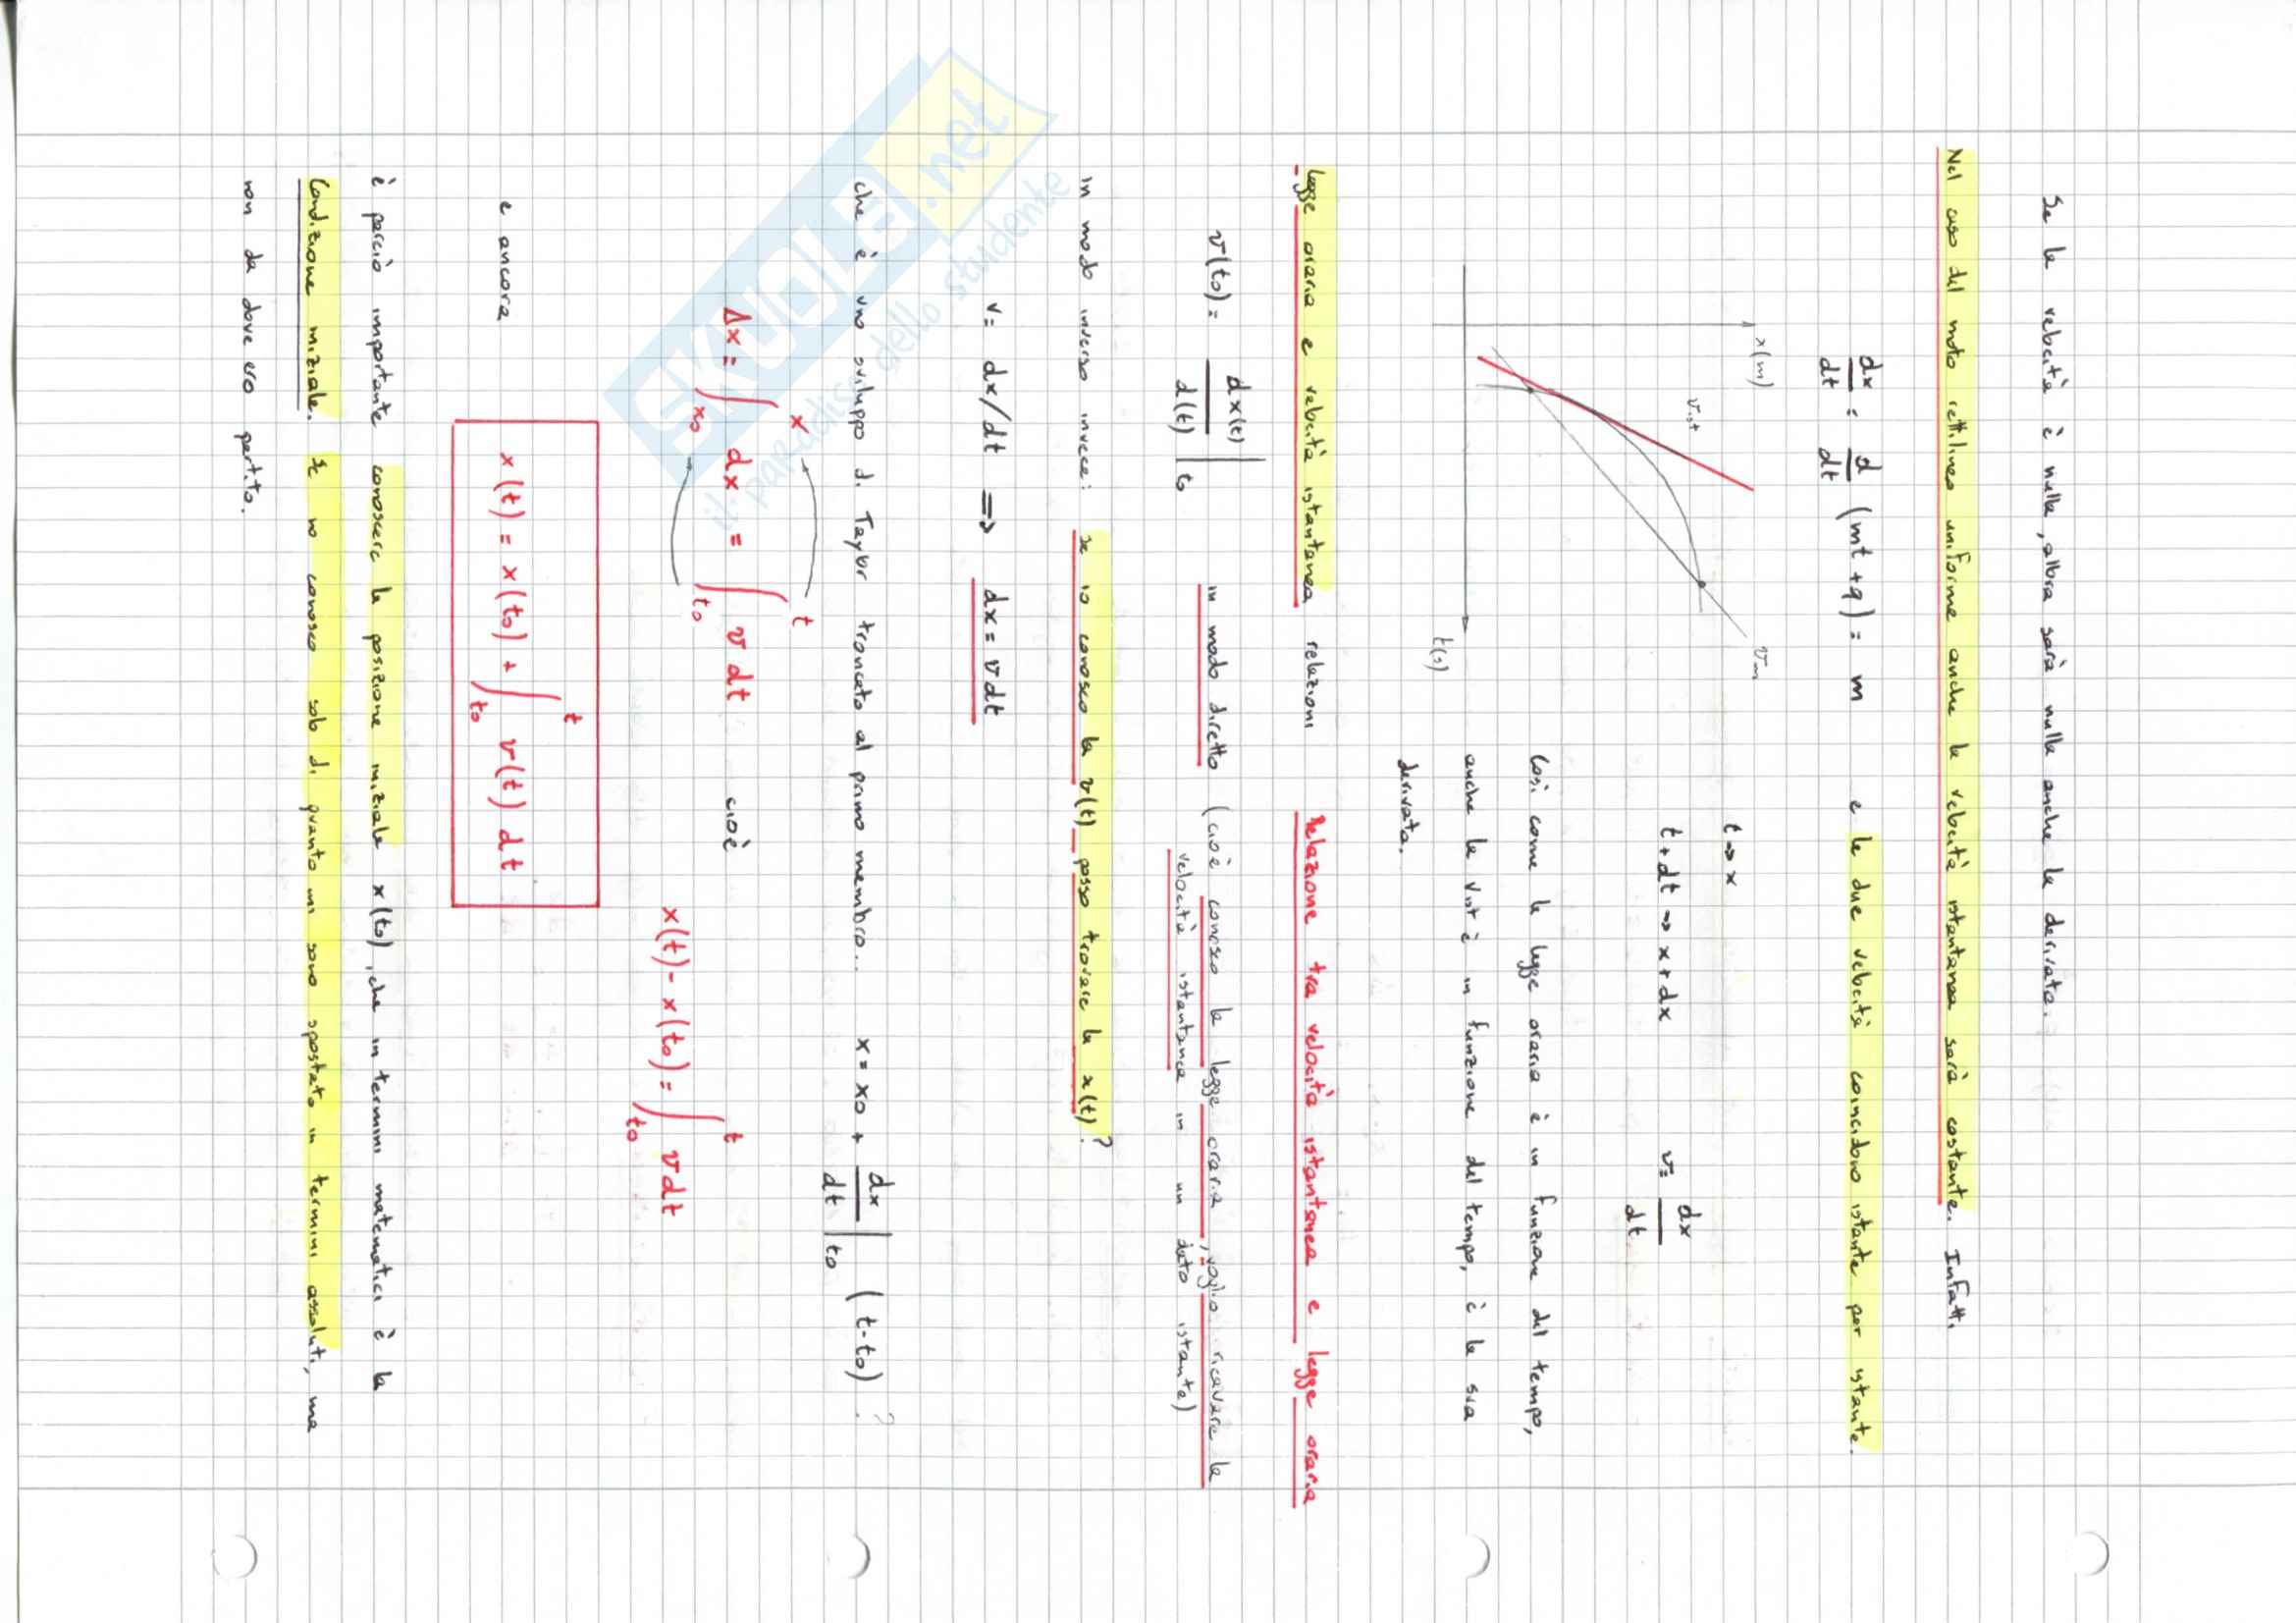 Se la velocità è nulla, allora sarà nulla anche la derivata.
Nel caso del moto rettilineo uniforme anche la velocità istantanea sarà costante. Infatti
dx/dt = d/dt (mt + q) = m e le due velocità coincidono istante per istante.
x(m)
v ist
v m
t(s)
t → x
t + dt → x + dx
v = dx/dt
Così come la legge oraria è in funzione del tempo,
anche la v ist è in funzione del tempo, è la sua
derivata.
legge oraria e velocità istantanea relazioni Relazione tra velocità istantanea e legge oraria
v(t0) = dx(t)/d(t) | t0 in modo diretto (cioè conosco la legge oraria, voglio ricavare la
velocità istantanea in un dato istante)
In modo inverso invece: se io conosco la v(t) posso trovare la x(t)?
v = dx/dt ⇒ dx = v dt
che è uno sviluppo di Taylor troncato al primo membro... x = x0 + dx/dt | t0 (t - t0) ?
Δx = ∫ x0 x dx = ∫ t0 t v dt cioè x(t) - x(t0) = ∫ t0 t v dt
e ancora x(t) = x(t0) + ∫ t0 t v(t) dt
è perciò importante conoscere la posizione iniziale x(t0), che in termini matematici è la
condizione iniziale. Se no conosco solo di quanto mi sono spostato in termini assoluti, ma
non da dove ero partito.
SKUOLA.net
il paradiso dello studente